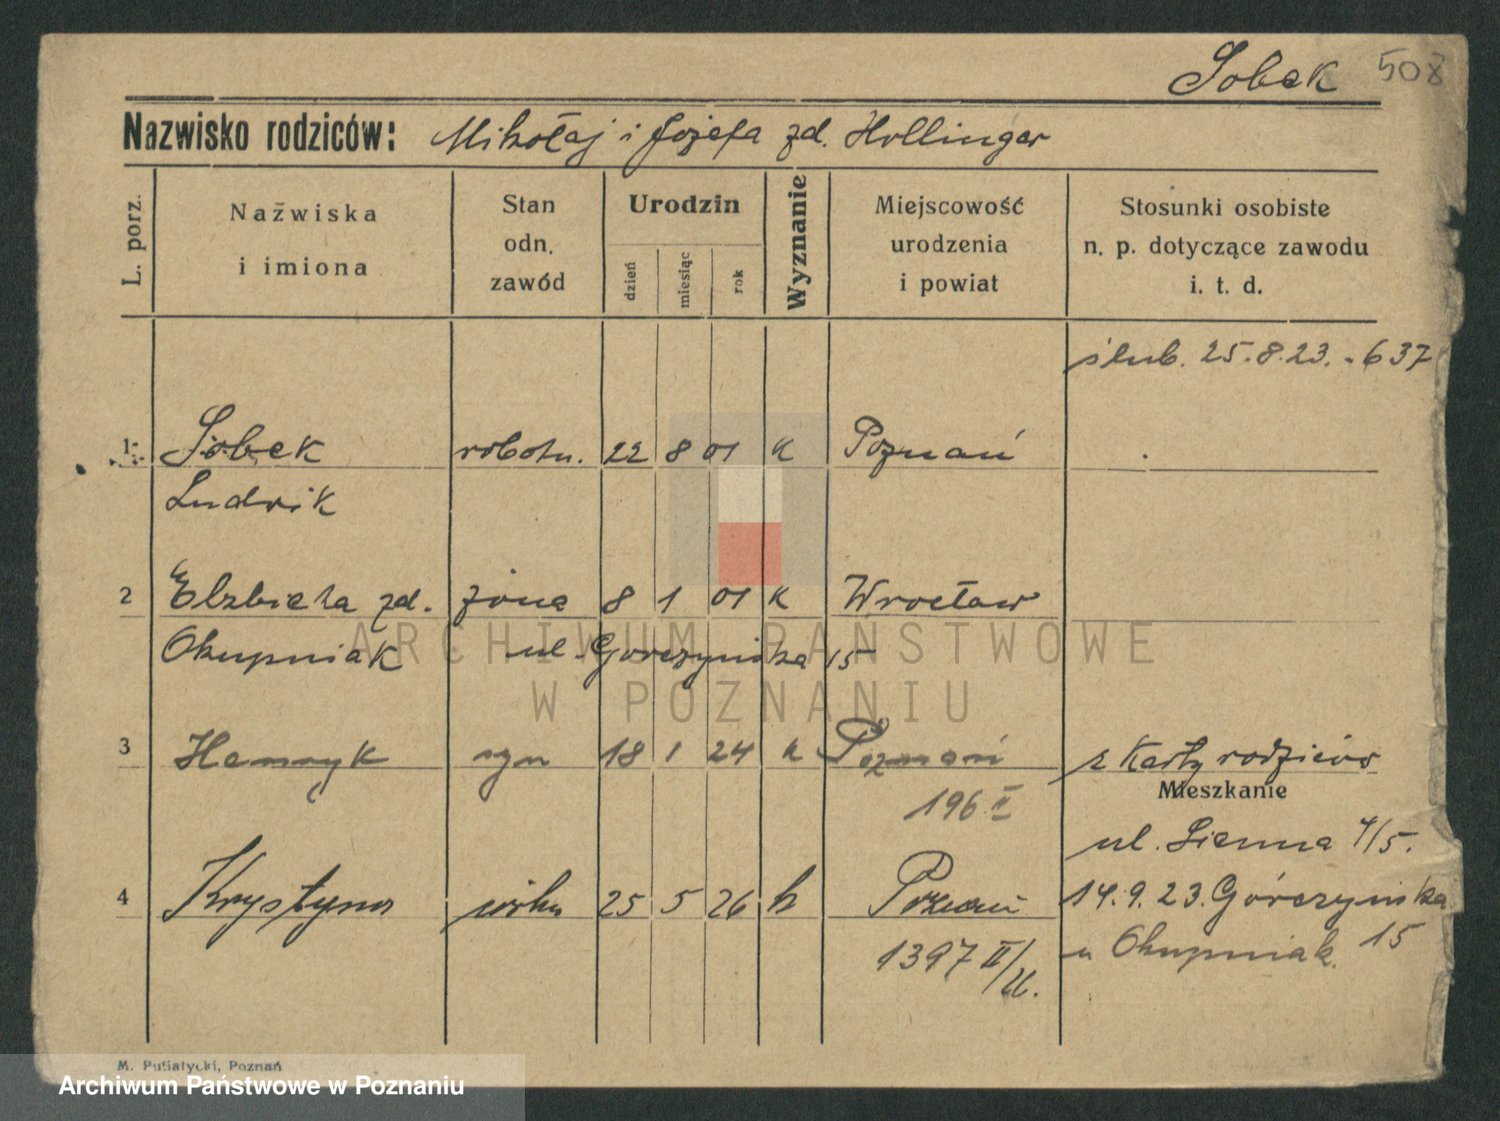 Sobek 508
Nazwisko rodziców: Mikołaj i Józefa zd. Hollinger
L. porz.
Nazwiska i imiona
Stan odn. zawód
Urodzin
dzień miesiąc rok
Wyznanie
Miejscowość urodzenia i powiat
Stosunki osobiste n. p. dotyczące zawodu i. t. d.
ślub. 25.8.23. - 637
1. Sobek robotn. 22 8 01 k Poznań
Ludwik
2 Elzbieta zd. żona 8 1 01 k Wrocław
Okupniak ul. Górczyńska 15
ARCHIWUM PAŃSTWOWE
W POZNANIU
3 Henryk syn 18 1 24 k Poznań z Karty rodziców
196 II
Mieszkanie
ul. Sienna 4/5.
4 Krystyna córka 25 5 26 k Poznań 14.9.23. Górczyńska 15
1397 II/26. u Okupniak.
M. Putiatycki, Poznań
Archiwum Państwowe w Poznaniu